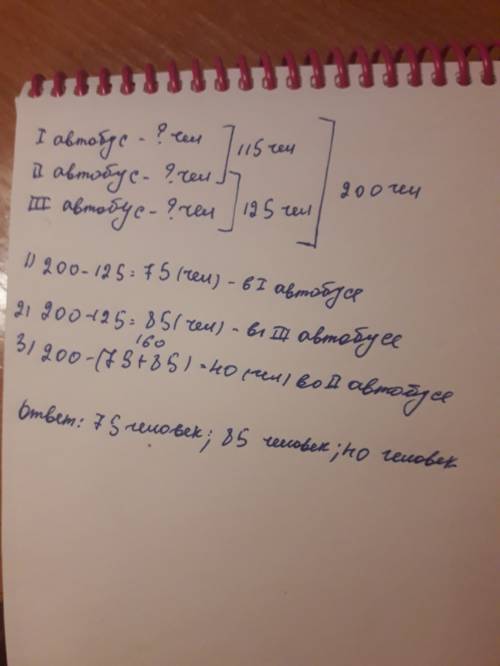 I автобус - ? чел
II автобус - ? чел 115 чел
III автобус - ? чел 125 чел
200 чел
1) 200 - 125 = 75 (чел) - в I автобусе
2) 200 - 125 = 85 (чел) - в III автобусе
160
3) 200 - (75 + 85) = 40 (чел) во II автобусе
Ответ: 75 человек; 85 человек; 40 человек